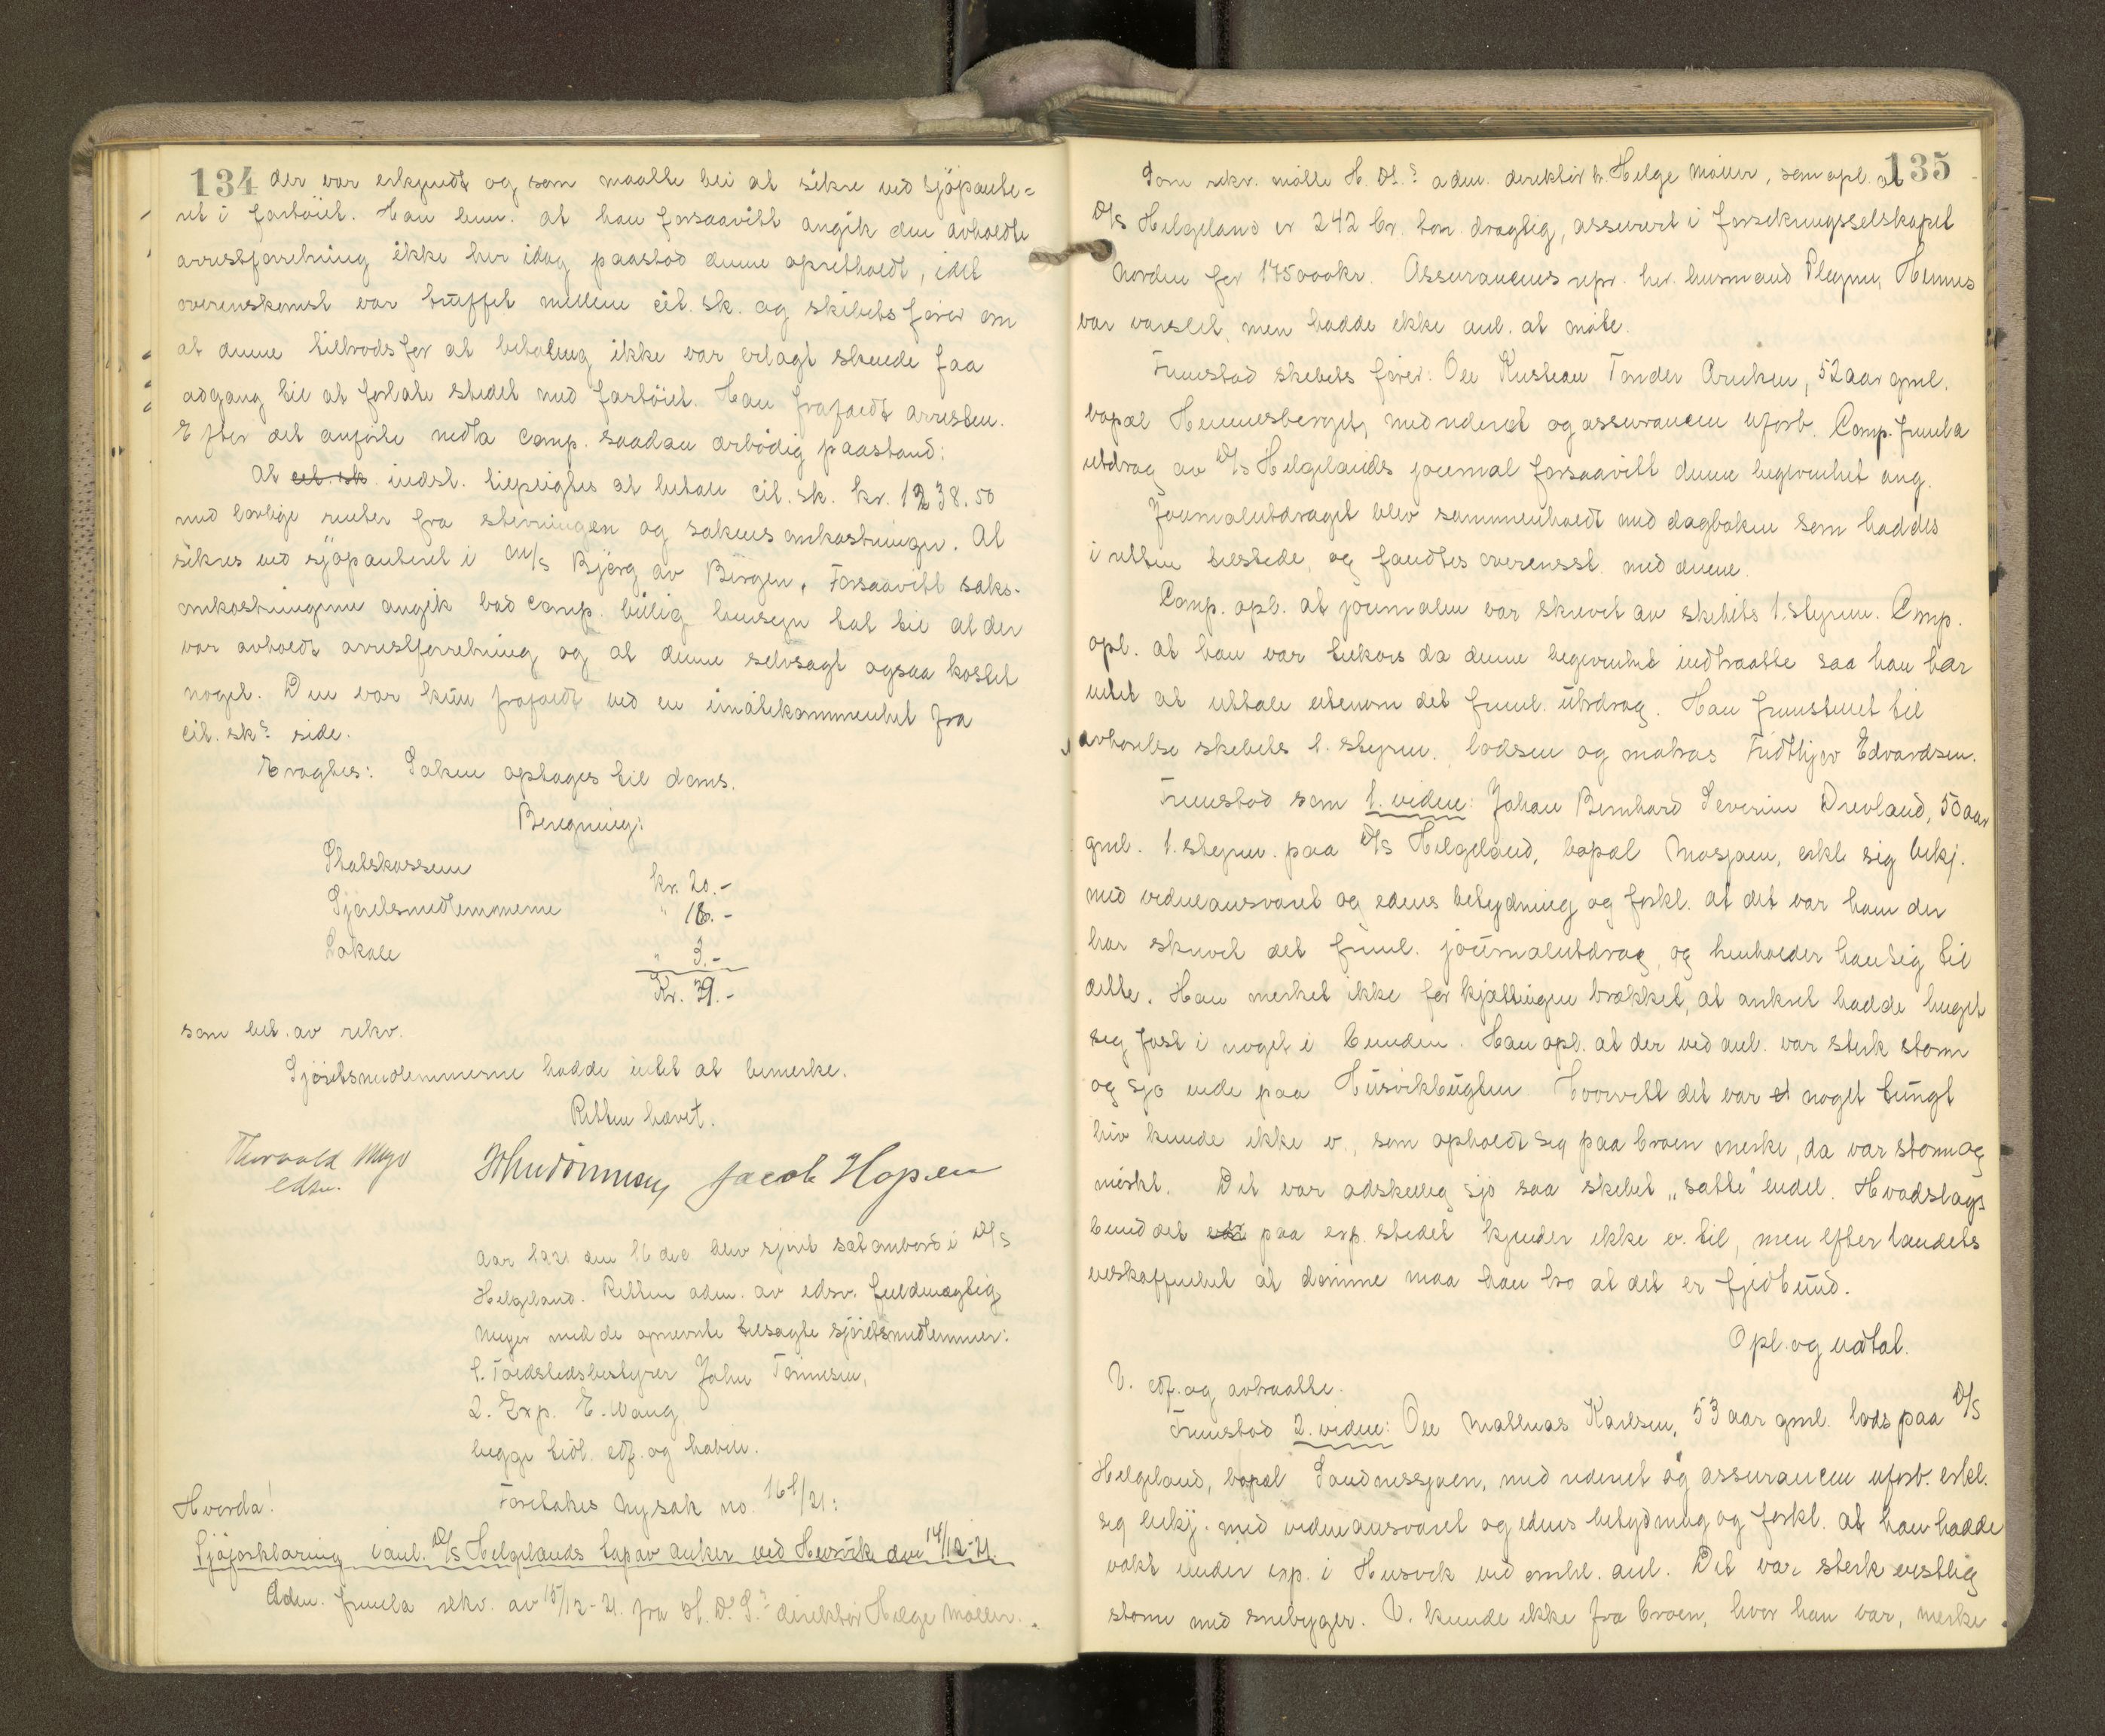 134 der var erkjendt og som maatte bli at sikre ved sjöpante=
ret i fartöiet. Han bem. at han forsaavitt angik den avholdte
arrestforretning ikke her idag paastod denne opretholdt, idet
overenskomst var truffet mellem cit. sk. og skibets förer om
at denne tiltrods for at betaling ikke var erlagt skulde faa
adgang til at forlate stedet med fartöiet. Han frafaldt arresten.
Efter det anförte nedla comp. saadan ærbödig paastand:
At cit. sk. indst. tilpligtes at betale cit. sk. kr. 1238.50
med lovlige renter fra stevningen og sakens omkostninger. At
sikres ved sjöpanteret i M/S Bjerg av Bergen. Forsaavitt saks-
omkostningene angik bad comp. billig hensyn tat til at der
var avholdt arrestforretning og at denne selvsagt ogsaa kostet
noget. Den var kun frafaldt ved en imötekommenhet fra
cit. sk.s side.
Eragtes: Saken optages til doms.
Beregning:
Statskassen kr. 20.-
Sjöretsmedlemmerne " 16.-
Lokale " 3.-
Kr. 39.-
som bet. av rekv.
Sjöretsmedlemmerne hadde intet at bemerke.
Retten hævet.
Thorvald Meyer
edsv.
Jacob Hopen
Aar 1921 den 16 des. blev sjöret sat ombord i D/S
Helgeland. Retten adm. av edsv. fuldmægtig
Meyer med de opnevnte tilsagte sjöretsmedlemmer:
1. Toldstedsbestyrer John Tönnesen,
2. Exp. E. Wang
begge tidl. edf. og habile.
Hvorda!
Foretokes ny sak no. 161/21:
Sjöforklaring i anl. D/S Helgelands tap av anker ved Husvik den 14/12-21.
Adm. fremla rekv. av 15/12-21. fra H. D. S.s direktör Helge Möller.
135
Som rekv. mötte H. D.s adm. direktör hr. Helge Möller, som opl. at
D/S Helgeland er 242 br. ton. drægtig, assurert i forsikringsselskapet
Norden for 175000kr. Assurancens repr. her. Plegner, Hemnes
var varslet, men hadde ikke anl. at möte.
Fremstod skibets förer: Ole Kristian Tonder Arntzen, 52 aar gml.
bopæl Hemnesberget, med rederiet og assurancen uforb. Comp. fremla
utdrag av D/S Helgelands journal forsaavitt denne begivenhet ang.
Journalutdraget blev sammenholdt med dagboken som haddes
i retten tilstede, og fandtes overensst. med denne.
Comp. opl. at journalen var skrevet av skibets 1. styrm. Comp.
opl. at han var tilköis da denne begivenhet indtraatte saa han har
intet at uttale utenom det freml. utdrag. Han fremstillet til
avhörelse skibets 1. styrm., lodsen og matros Fridthjov Edvardsen.
Fremstod som 1. vidne: Johan Bernhard Severin Drevland, 50 aar
gml. 1. styrm. paa D/S Helgeland, bopæl Mosjøen, erkl. sig bekj.
med vidneansvaret og edens betydning og forkl. at det var ham der
har skrevet det freml. journalutdrag, og henholder han sig til
dette. Han merket ikke för kjættingen brækket, at ankret hadde huget
seg fast i noget i bunden. Han opl. at der ved anl. var sterk storm
og sjö inde paa Husvikbugten. Hvorvitt det var et noget tungt
hiv kunde ikke v., som opholdt seg paa broen merke, da var storm og
mörkt. Det var adskillig sjö saa skibet „satte" endel. Hvadslags
bund det er paa exp. stedet kjender ikke v. til, men efter landets
beskaffenhet at dömme maa han tro at det er fjeldbund.
Opl. og vedtat.
V. edf. og avtraatte.
Fremstod 2. vidne: Ole Mathias Karlsen, 53 aar gml. lods paa D/S
Helgeland, bopæl Sandnessjøen, med rederiet og assurancen uforb. erkl.
seg bekj. med vidneansvaret og edens betydning og forkl. at han hadde
vakt under exp. i Husvik ved omhl. anl. Det var sterk vestlig
storm med snebyger. V. kunde ikke fra broen, hvor han var, merke